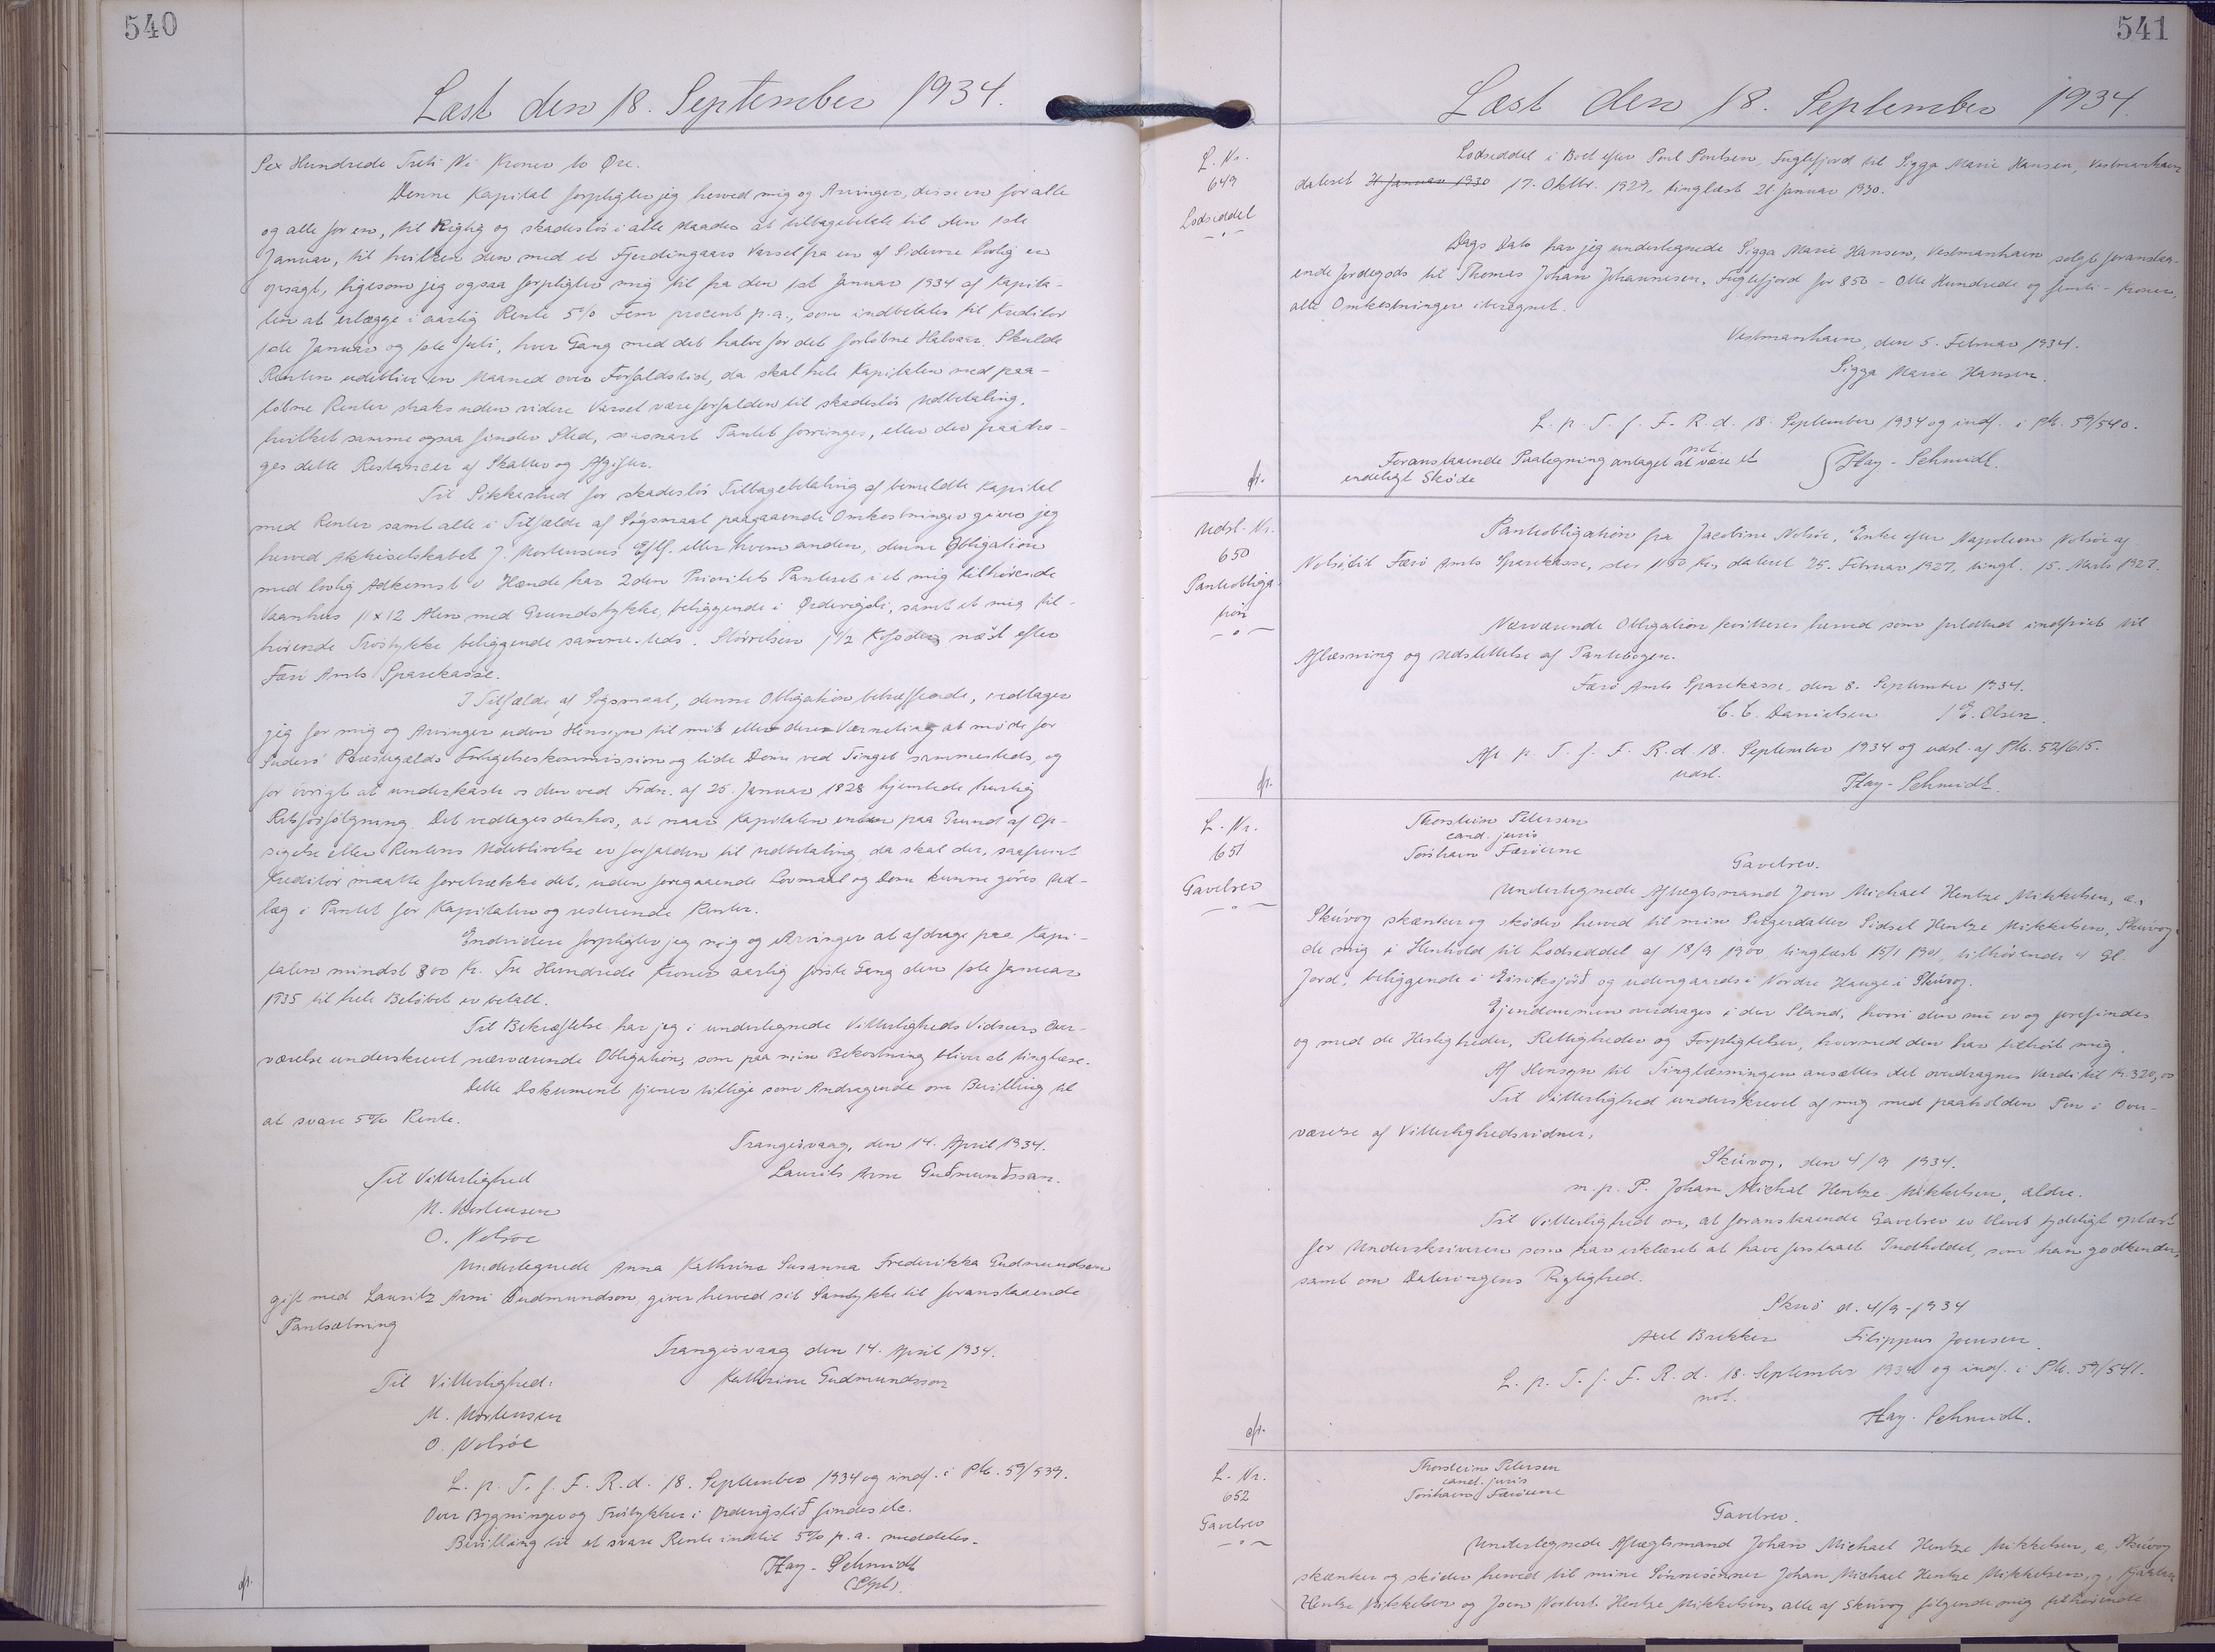 540
Læst den 18. September 1934.
Sex Hundrede Treti Ni Kroner to Øre.
Denne Kapital forpligter jeg herved mig og Arvinger, disse en for alle
og alle for en, til Rigtig og skadeslös i alle Maader at tilbagebetale til den 1ste
Januar, til hvilken den med et Fjerdingaars Varsel fra en af Siderne lovlig er
opsagt, ligesom jeg ogsaa forpligter mig til fra den 1st Januar 1934 af Kapita-
len at erlægge i aarlig Rente 5% Fem procent p.a., som indbetales til Kreditor
1ste Januar og 1ste Juli, hver Gang med det halve for det forløbne Halvaar. Skulde
Renten udeblive en Maaned over Forfaldstid, da skal hele Kapitalen med paa-
löbne Renter straks uden videre Varsel være forfalden til skadeslös Udbetaling,
hvilket samme ogsaa finder Sted, saasnart Pantet forringes, eller der paadra-
ges dette Restancer af Skatter og Afgifter.
Til Sikkerhed for skadeslös Tilbagebetaling af bemeldte Kapital
med Renter samt alle i Tilfælde af Sögsmaal paagaaende Omkostninger giver jeg
herved Aktieselskabet J. Mortensens Eftf. eller hvem anden, denne Obligation
med lovlig Adkomst i Hænde har 2den Prioritets Panteret i et mig tilhörende
Vaanhus 11 x 12 Alen med Grundstykke, beliggende i Ordavigsli, samt et mig til-
hörende Tröstykke beliggende sammesteds. Störrelsen 1 1/2 næst efter
Færö Amts Sparekasse.
I Tilfælde af Sögsmaal, denne Obligation betræffende, vedtager
jeg for mig og Arvinger uden Hensyn til mit eller deres Værneting at möde for
Suderö Præstegælds Forligelseskommission og lide Dom ved Tinget sammesteds, og
for övrigt at underkaste os den ved Frdn. af 25. Januar 1828 hjemlede hurtig
Retsforfölgning. Det vedtages derhos, at naar Kapitalen enten paa Grund af Op-
sigelse eller Rentens Udeblivelse er forfalden til Udbetaling, da skal der, saafremt
Kreditor maatte foretrække det, uden foregaaende Lovmaal og Dom kunne göres Ud-
læg i Pantet for Kapitalen og resterende Renter.
Endvidere forpligter jeg mig og Arvinger at afdrage paa Kapi-
talen mindst 300 Kr. Tre Hundrede Kroner aarlig förste Gang den 1ste Januar
1935 til hele Belöbet er betalt.
Til Bekræftelse har jeg i undertegnede Vitterligheds Vidners Over-
værelse underskrevet nærværende Obligation, som paa min Bekostning bliver at tinglæse.
Dette Dokument tjener tillige som Andragende om Bevilling til
at svare 5% Rente.
Trangisvaag, den 14. April 1934.
Laurits Arne Guðmundsson.
Til Vitterlighed
M. Mortensen
O. Nolsöe
Undertegnede Anna Kathrina Susanna Frederikka Gudmundsen
gift med Lauritz Arni Gudmundson, giver herved sit Samtykke til foranstaaende
Pantsætning
Trangisvaag den 14. April 1934.
Til Vitterlighed:
Kathrine Gudmundsson
M. Mortensen
O. Nolsöe
L. p. T. f. F. R. d. 18. September 1934 og indf. i Ptb. 59/539.
Over Bygninger og Tröstykker i Ordavigslið findes ete.
Bevilling til at svare Rente indtil 5% p.a. meddeles.
Hay-Schmidt
541
Læst den 18. September 1934.
L. Nr.
649
Lodseddel
Lodseddel i Boet efter Poul Poulsen, Fuglefjord til Sigga Marie Hansen, Vestmanhavn
dateret 21 Januar 1930 17. Oktbr. 1929, tinglæst 21. Januar 1930.
Dags Dato har jeg undertegnede Sigga Marie Hansen, Vestmanhavn solgt foranstaa-
ende Jordegods til Thomas Johan Johannesen, Fuglefjord for 850 - Otte Hundrede og femti - Kroner,
alle Omkostninger iberegnet.
Vestmanhavn, den 5. Februar 1934.
Sigga Marie Hansen.
L. p. T. f. F. R. d. 18. September 1934 og indf. i Ptb. 59/540.
not.
Foranstaaende Paategning antaget at være et
endeligt Sköde
Hay-Schmidt.
Udsl. Nr.
650
Panteobliga
tion
Panteobligation fra Jacobine Nolsöe, Enke efter Napoleon Nolsöe af
Nolsö til Færö Amts Sparekasse, stor 1150 Kr., dateret 25. Februar 1927, tingl. 15. Marts 1927.
Nærværende Obligation kvitteres herved som fuldtud indfriet til
Aflæsning og Udslettelse af Pantebogen.
Færö Amts Sparekasse, den 8. September 1934.
C. C. Danielsen / E. Olsen.
Afl. p. T. f. F. R. d. 18. September 1934 og udsl. af Ptb. 52/615.
udsl.
Hay-Schmidt.
L. Nr.
651
Gavebrev
Thorstein Petersen
cand. juris
Torshavn Færöerne
Gavebrev.
Undertegnede Aftægtsmand Joen Michael Hentze Mikkelsen, æ.,
Skúvoy skænker og sköder herved til min Sögerdatter Sidsel Hentze Mikkelsen, Skúvoy
de mig i Henhold til Lodseddel af 18/9 1900, tinglæst 15/1 1901, tilhörende 4 Gl.
Jord, beliggende i Eiriksjörð og udengaards i Nordre Hauge i Skúvoy.
Ejendommen overdrages i den Stand, hvori den nu er og forefindes
og med de Herligheder, Rettigheder og Forpligtelser, hvormed den har tilhört mig.
Af Hensyn til Tinglæsningen ansættes det overdragnes Værdi til Kr. 320,00
Til Vitterlighed underskrevet af mig med paaholden Pen i Over-
værelse af Vitterlighedsvidner.
Skúvoy, den 4/9 1934.
m. p. P. Johan Michal Hentze Mikkelsen, ældre.
Til Vitterlighed om, at foranstaaende Gavebrev er blevet tydeligt oplæst
for Underskriveren som har erklæret at have forstaaet Indholdet, som han godkender,
samt om Dateringens Rigtighed.
Skuö d. 4/9-1934
Axel Brekker Filippus Joensen.
L. p. T. f. F. R. d. 18. September 1934 og indf. i Ptb. 59/541.
not.
Hay-Schmidt.
L. Nr.
652
Gavebrev
Thorstein Petersen
cand. juris
Torshavn Færöerne
Gavebrev.
Undertegnede Aftægtsmand Johan Michael Hentze Mikkelsen, æ, Skúvoy
skænker og sköder herved til mine Sönnesönner Johan Michael Hentze Mikkelsen, y,
Hentze Mikkelsen og Joen Norbert Hentze Mikkelsen, alle af Skúvoy fölgende mig tilhörende